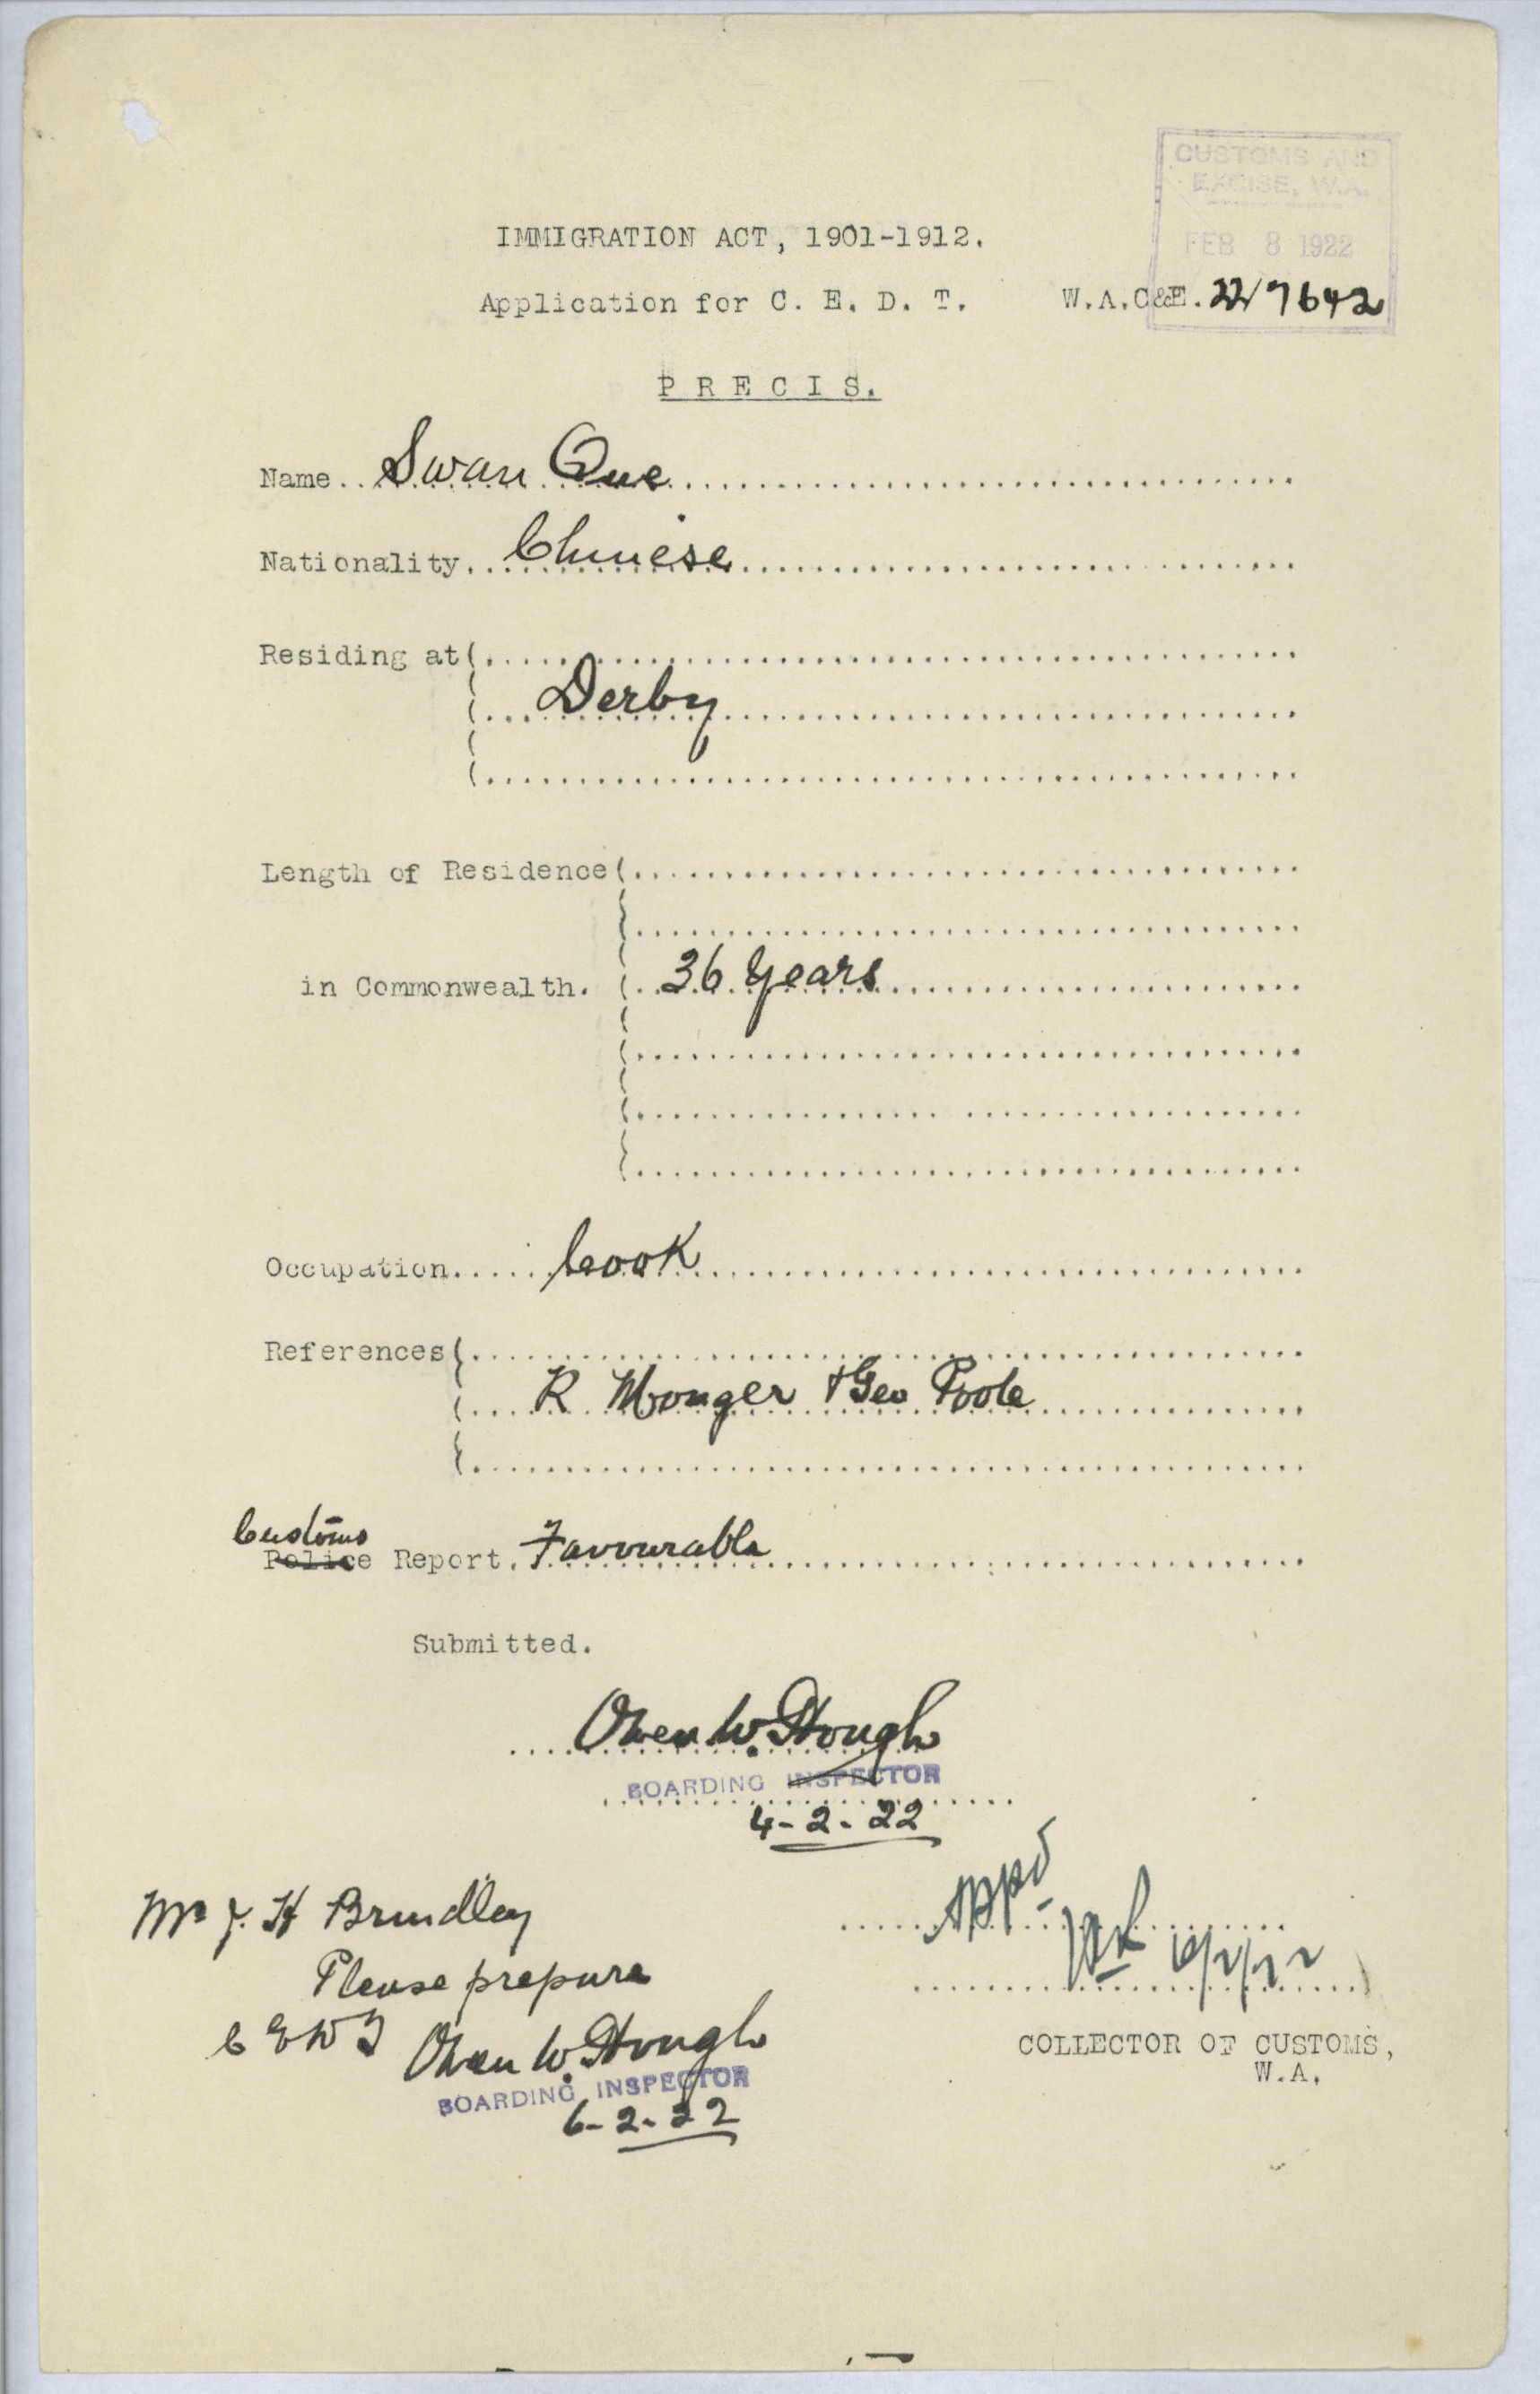 CUSTOMS AND
EXCISE, W.A.
FEB 8 1922
IMMIGRATION ACT, 1901-1912.
Application for C. E. D. T. W.A.C&E. 22/7642
P R E C I S.
Name.. Swan Que
Nationality. Chinese
Residing at
Derby
Length of Residence
in Commonwealth. 36 Years
Occupation Cook
References
R Monger & Geo Poole
Customs
Police Report. Favourable
Submitted.
Owen W. Hough
BOARDING INSPECTOR
4-2-22
Appd
Mr J. H Brindley
Please prepare
C E D T Owen W. Hough
BOARDING INSPECTOR
6-2-22
6/2/22
COLLECTOR OF CUSTOMS,
W.A.